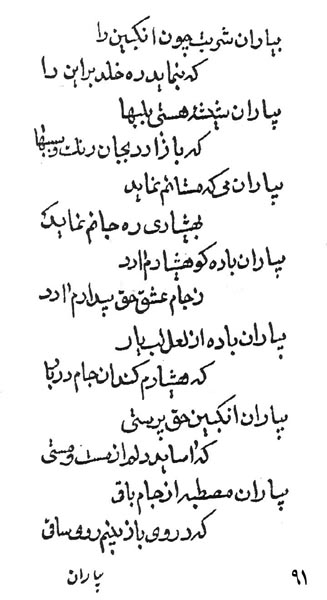 بیاران شربت چون انگبین را
که بنماید ره خلد برین را
بیاران شیشهٔ هستی بلبها
که باز آرد بجان رنگ و
بیاران می که مستانم نماید
بهشیاری ره جانم نماید
بیاران باده کو هشیارم آرد
ز جام عشق حق بیدارم آرد
بیاران باده از لعل لب یار
که هشیارم کند آن جام
بیاران انگبین حق پرستی
که آساید دلم از مست و مستی
بیاران مصطبه از جام باقی
که در روی باز بینم روی ساقی
۹۱ بیاران